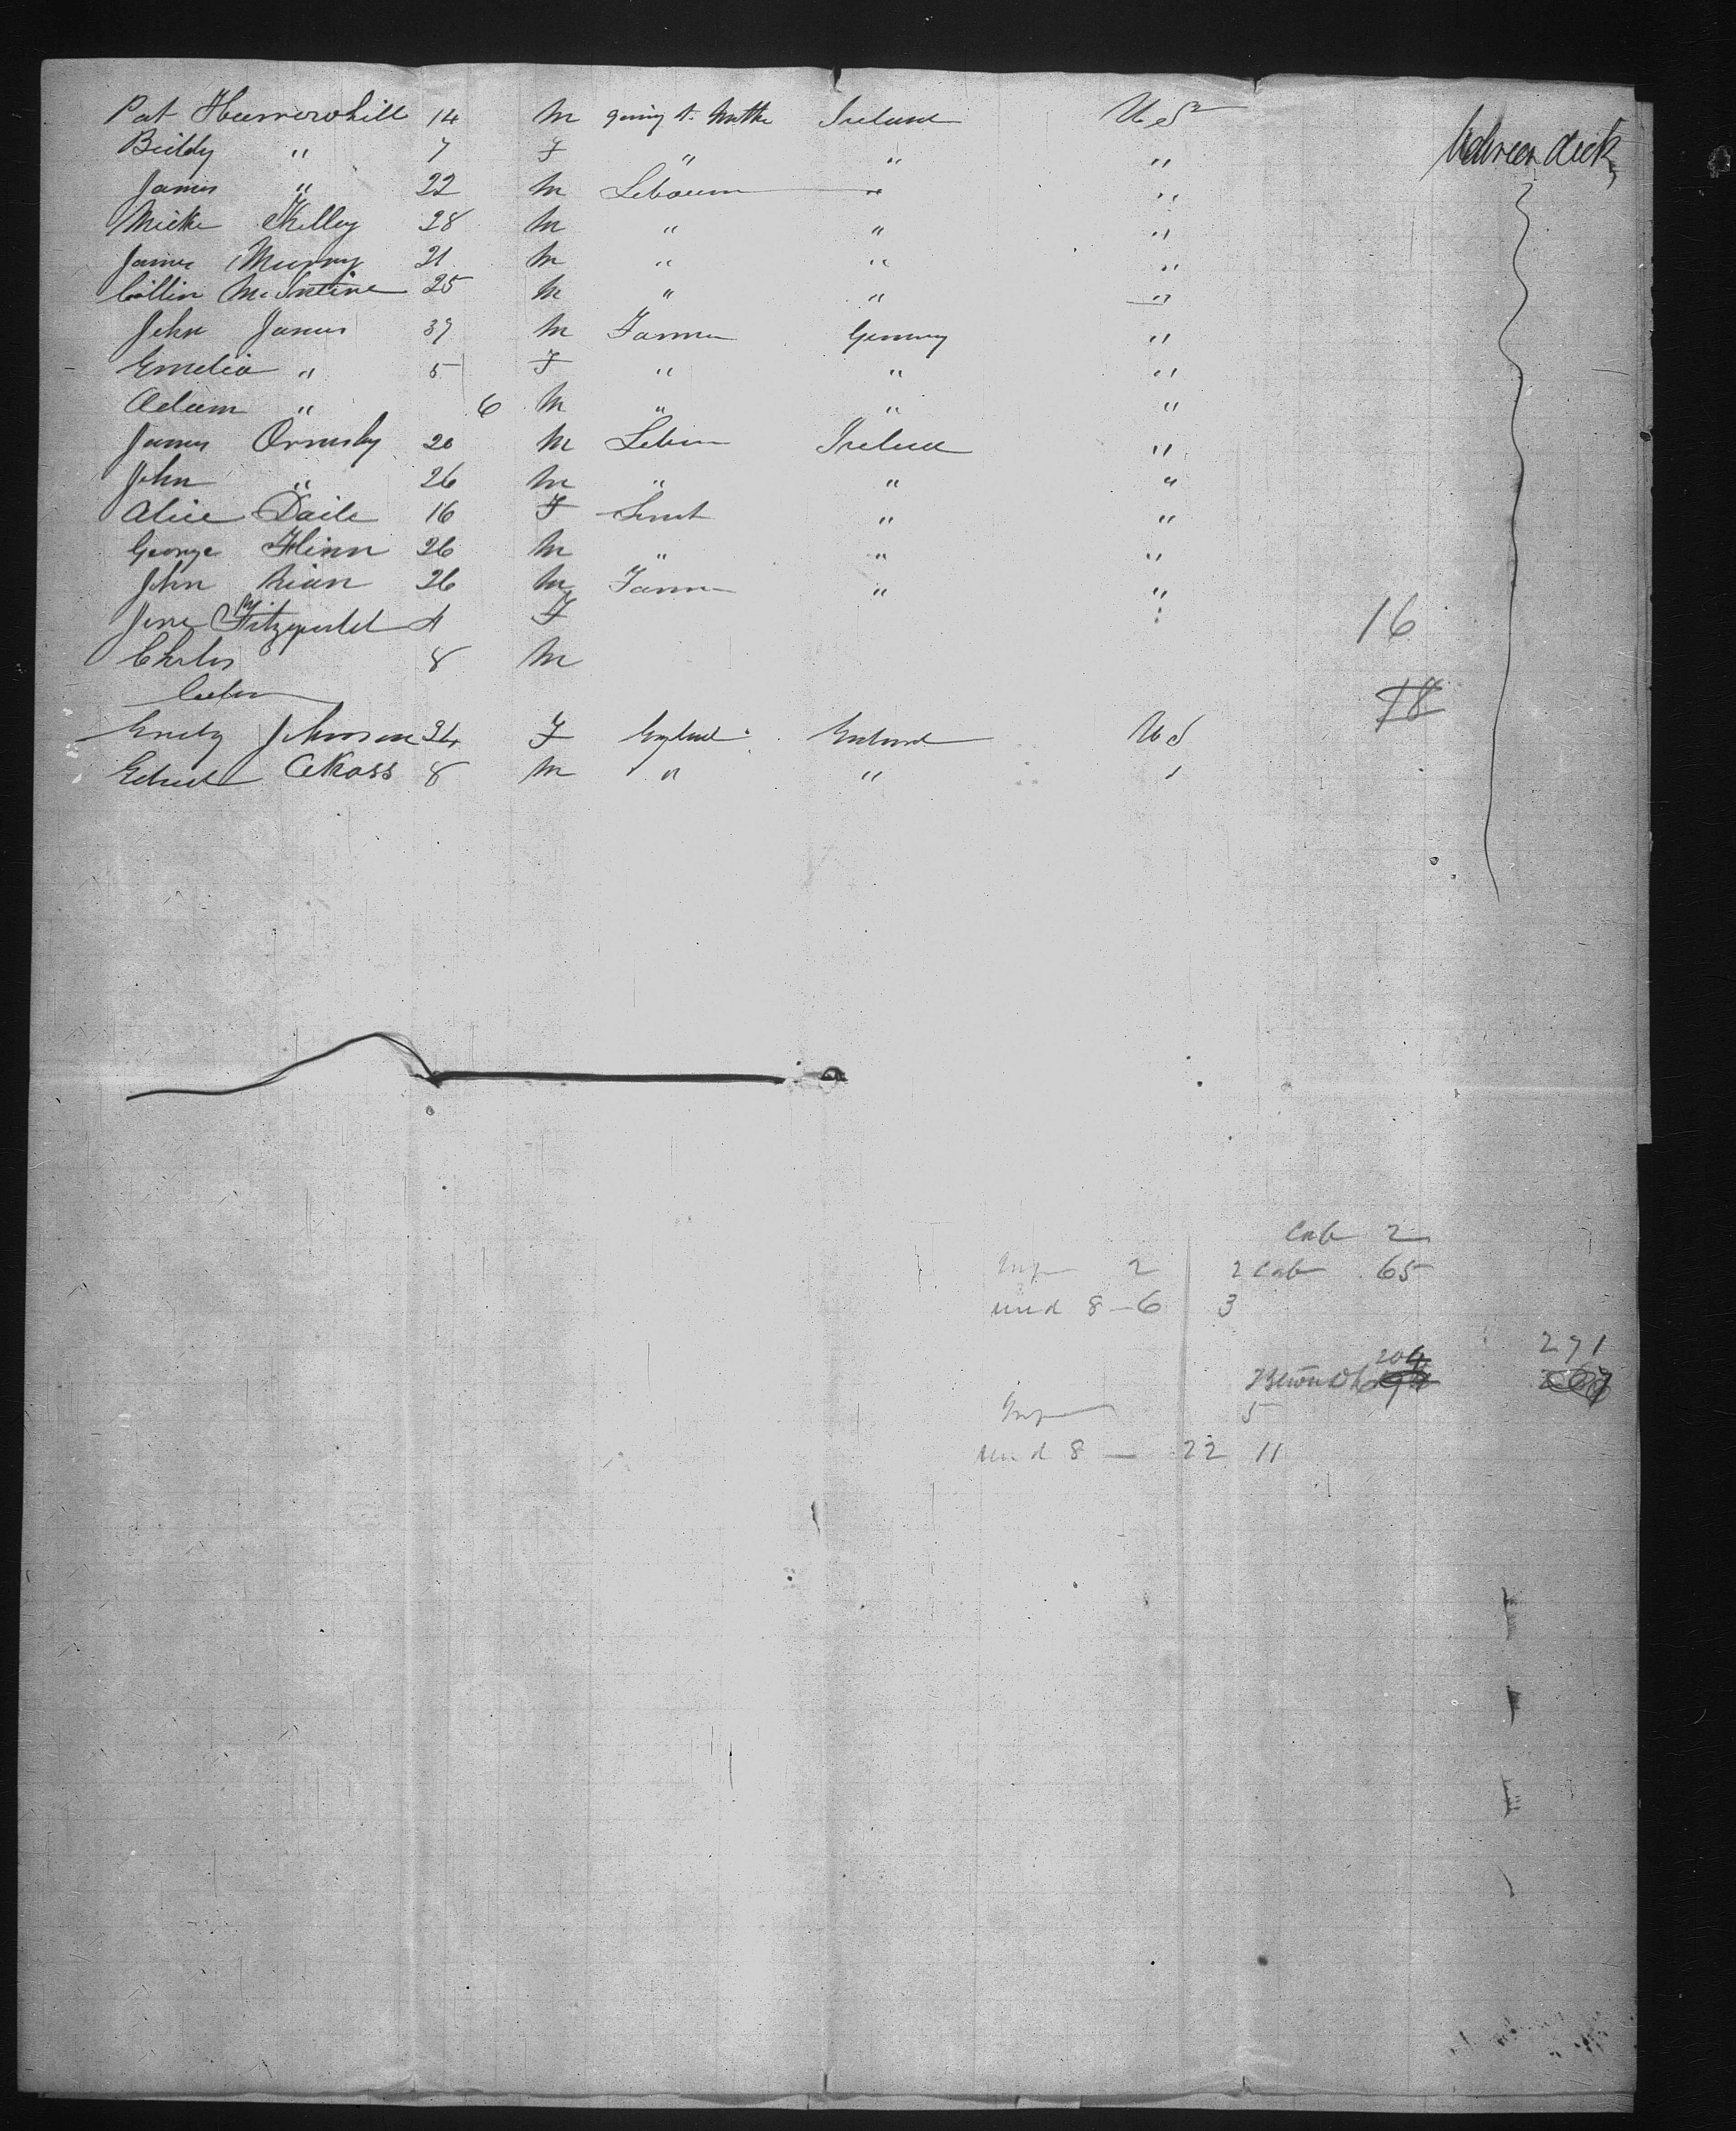 Pat 14 M going to Mother Ireland U S
Biddy " 7 F " " "
James " 22 M Labourer " "
Micke Kelley 28 M " " "
James Murray 21 M " " "
Collin McIntire 25 M " " "
John James 39 M Farmer Germany "
Emelia " 5 F " " "
Adam " 6 M " " "
James Ormsby 20 M Labour Ireland "
John " 26 M " " "
Alice Daile 16 F Servt " "
George Flinn 26 M " " "
John Rian 26 M Farmer " "
Jane M Fitzgerald 4 F
16
Charles 8 M
18
Emely Johnson 34 F England England U S
Edward Akass 8 M " " "
Cab 2
Inf 2 2 Cab 65
und 8 - 6 3
204
271
Inf 5
und 8 — 22 11